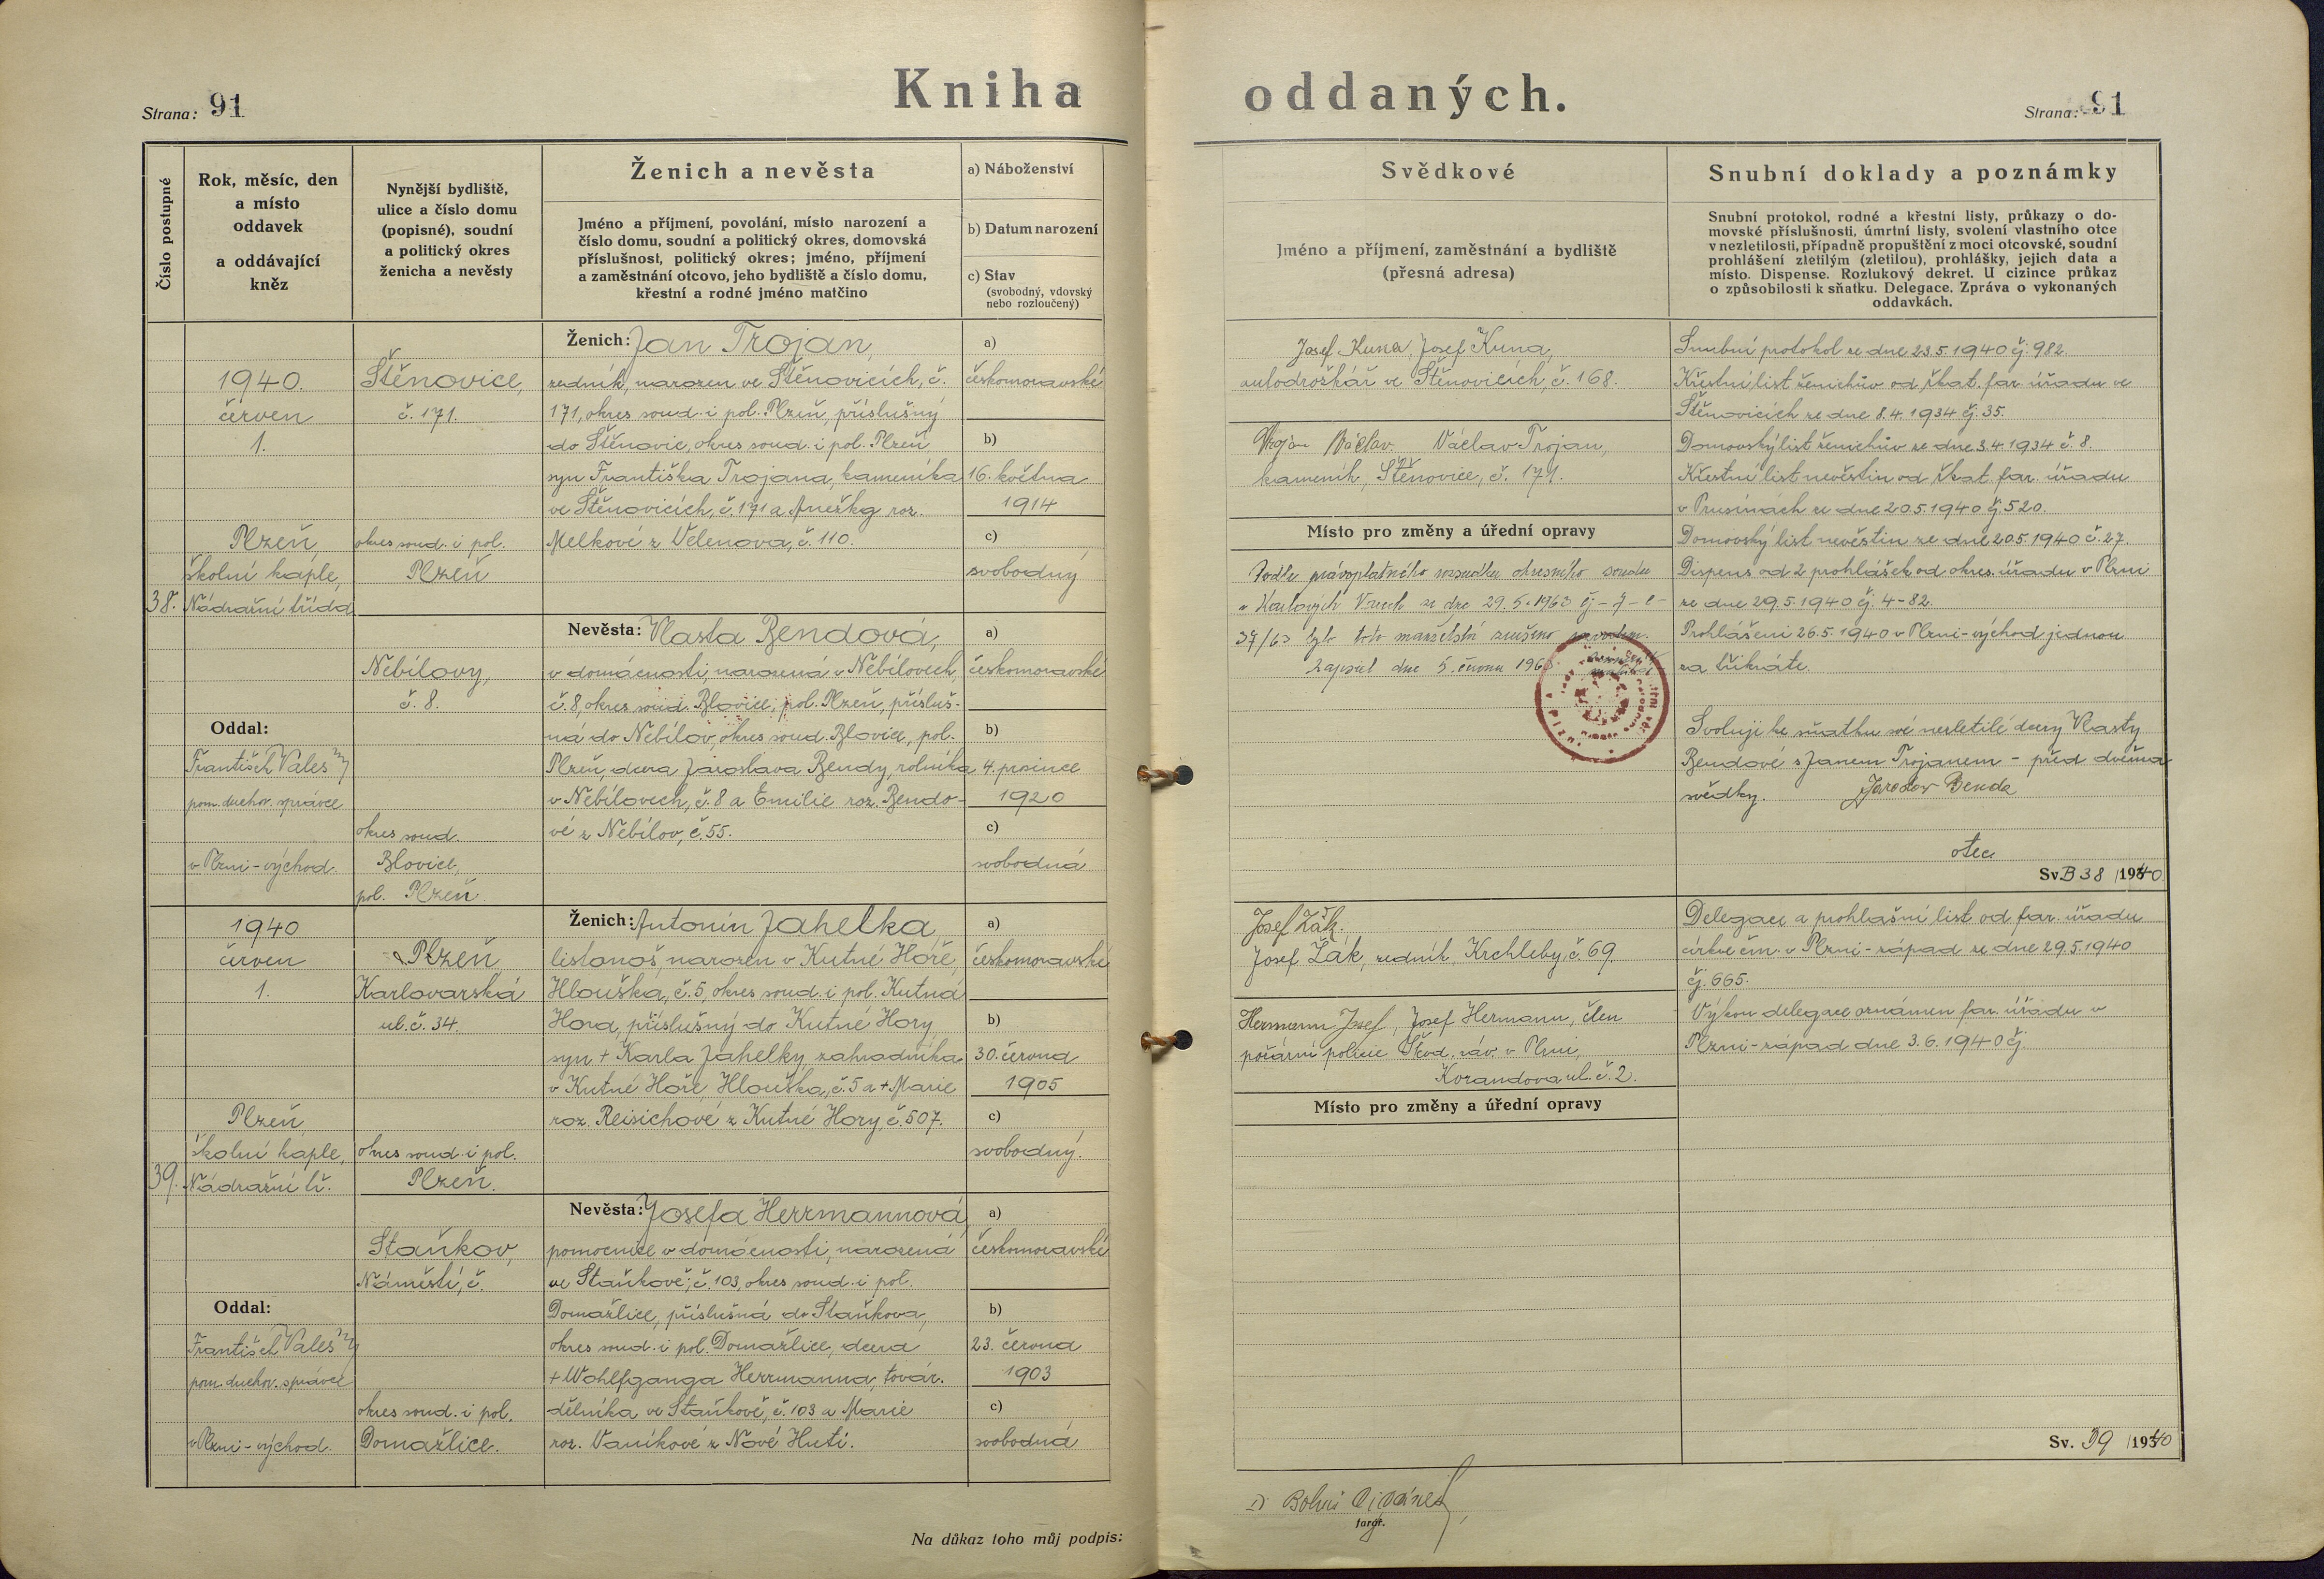 Kniha oddaných.
Strana: 91
Strana: 91
Číslo postupné
Rok, měsíc, den
a místo
oddavek
a oddávající
kněz
Nynější bydliště,
ulice a číslo domu
(popisné), soudní
a politický okres
ženicha a nevěsty
Ženich a nevěsta
Jméno a příjmení, povolání, místo narození a
číslo domu, soudní a politický okres, domovská
příslušnost, politický okres; jméno, příjmení
a zaměstnání otcovo, jeho bydliště a číslo domu,
křestní a rodné jméno matčino
a) Náboženství
b) Datum narození
c) Stav
(svobodný, vdovský
nebo rozloučený)
Svědkové
Jméno a příjmení, zaměstnání a bydliště
(přesná adresa)
Snubní doklady a poznámky
Snubní protokol, rodné a křestní listy, průkazy o do-
movské příslušnosti, úmrtní listy, svolení vlastního otce
v nezletilosti, případně propuštění z moci otcovské, soudní
prohlášení zletilým (zletilou), prohlášky, jejich data a
místo. Dispense. Rozlukový dekret. U cizince průkaz
o způsobilosti k sňatku. Delegace. Zpráva o vykonaných
oddavkách.
38.
1940.
červen
1.
Plzeň,
školní kaple,
Nádražní třída
Oddal:
František Váleš
pom. duchov. správce
v Plzni-východ.
Štěnovice,
č. 171.
okres soud. i pol.
Plzeň
Nebílovy,
č. 8.
okres soud.
Blovice,
pol. Plzeň
Ženich: Jan Trojan,
zedník, narozen ve Štěnovicích, č.
171, okres soud. i pol. Plzeň, příslušný
do Štěnovic, okres soud. i pol. Plzeň,
syn Františka Trojana, kameníka
ve Štěnovicích, č. 171 a Anežky roz.
Melkové z Velenova, č. 110.
a)
českomoravské
b)
16. května
1914
c)
svobodný
Nevěsta: Vlasta Bendová,
v domácnosti, narozená v Nebílovech,
č. 8, okres soud. Blovice, pol. Plzeň, přísluš-
ná do Nebílov, okres soud. Blovice, pol.
Plzeň, dcera Jaroslava Bendy, rolníka
v Nebílovech, č. 8 a Emilie roz. Bendo-
vé z Nebílov, č. 55.
a)
českomoravské
b)
4. prosince
1920
c)
svobodná
Josef Kuna, Josef Kuna,
autodrožkář ve Štěnovicích, č. 168.
Trojan Václav. Václav Trojan,
kameník, Štěnovice, č. 171.
Místo pro změny a úřední opravy
Podle právoplatného rozsudku okresního soudu
v Karlových Varech ze dne 29. 5. 1963
39/63 bylo toto manželství zrušeno rozvodem.
Zapsal dne 5. června 1963
Snubní protokol ze dne 23.5.1940 čj. 982.
Křestní list ženichův od řkat. far. úřadu ve
Štěnovicích ze dne 8.4.1934 čj. 35.
Domovský list ženichův ze dne 3.4.1934 č. 8.
Křestní list nevěstin od řkat. far. úřadu
v Prusinách ze dne 20.5.1940 čj. 520.
Domovský list nevěstin ze dne 20.5.1940 č. 27.
Dispens od 2 prohlášek od okres. úřadu v Plzni
ze dne 29.5.1940 čj. 4-82.
Prohlášeni 26.5.1940 v Plzni-východ jednou
za třikráte.
Svoluji ke sňatku své nezletilé dcery Vlasty
Bendové s Janem Trojanem - před dvěma
svědky. Jaroslav Benda
otec
Sv. B 38 /1940
39.
1940
červen
1.
Plzeň,
školní kaple,
Nádražní tř.
Oddal:
František Váleš
pom. duchov. správce
v Plzni-východ.
Plzeň
Karlovarská
ul. č. 34.
okres soud. i pol.
Plzeň.
Staňkov,
Náměstí, č.
okres soud. i pol.
Domažlice.
Ženich: Antonín Jahelka,
listonoš, narozen v Kutné Hoře,
Hlouška, č. 5, okres soud. i pol. Kutná
Hora, příslušný do Kutné Hory,
syn + Karla Jahelky, zahradníka
v Kutné Hoře, Hlouška, č. 5 a + Marie
roz. Reisichové z Kutné Hory č. 507.
a)
českomoravské
b)
30. června
1905
c)
svobodný.
Nevěsta: Josefa Herrmannová,
pomocnice v domácnosti, narozená
ve Staňkově, č. 103, okres soud. i pol.
Domažlice, příslušná do Staňkova,
okres soud. i pol. Domažlice, dcera
+ Wohlfganga Herrmanna, továr.
dělníka ve Staňkově, č. 103 a Marie
roz. Vaníkové z Nové Huti.
a)
českomoravské
b)
23. června
1903
c)
svobodná
Josef Žák.
Josef Žák, zedník, Krchleby, č. 69.
Hermann Josef, Josef Hermann, člen
požární policie Škod. záv. v Plzni,
Korandova ul. č. 2.
Místo pro změny a úřední opravy
Delegace a prohlašní list od far. úřadu
církve čm. v Plzni-západ ze dne 29.5.1940
čj. 665.
Výkon delegace oznámen far. úřadu v
Plzni-západ dne 3.6.1940 čj.
Sv. 39 /1940
Na důkaz toho můj podpis:
farář.